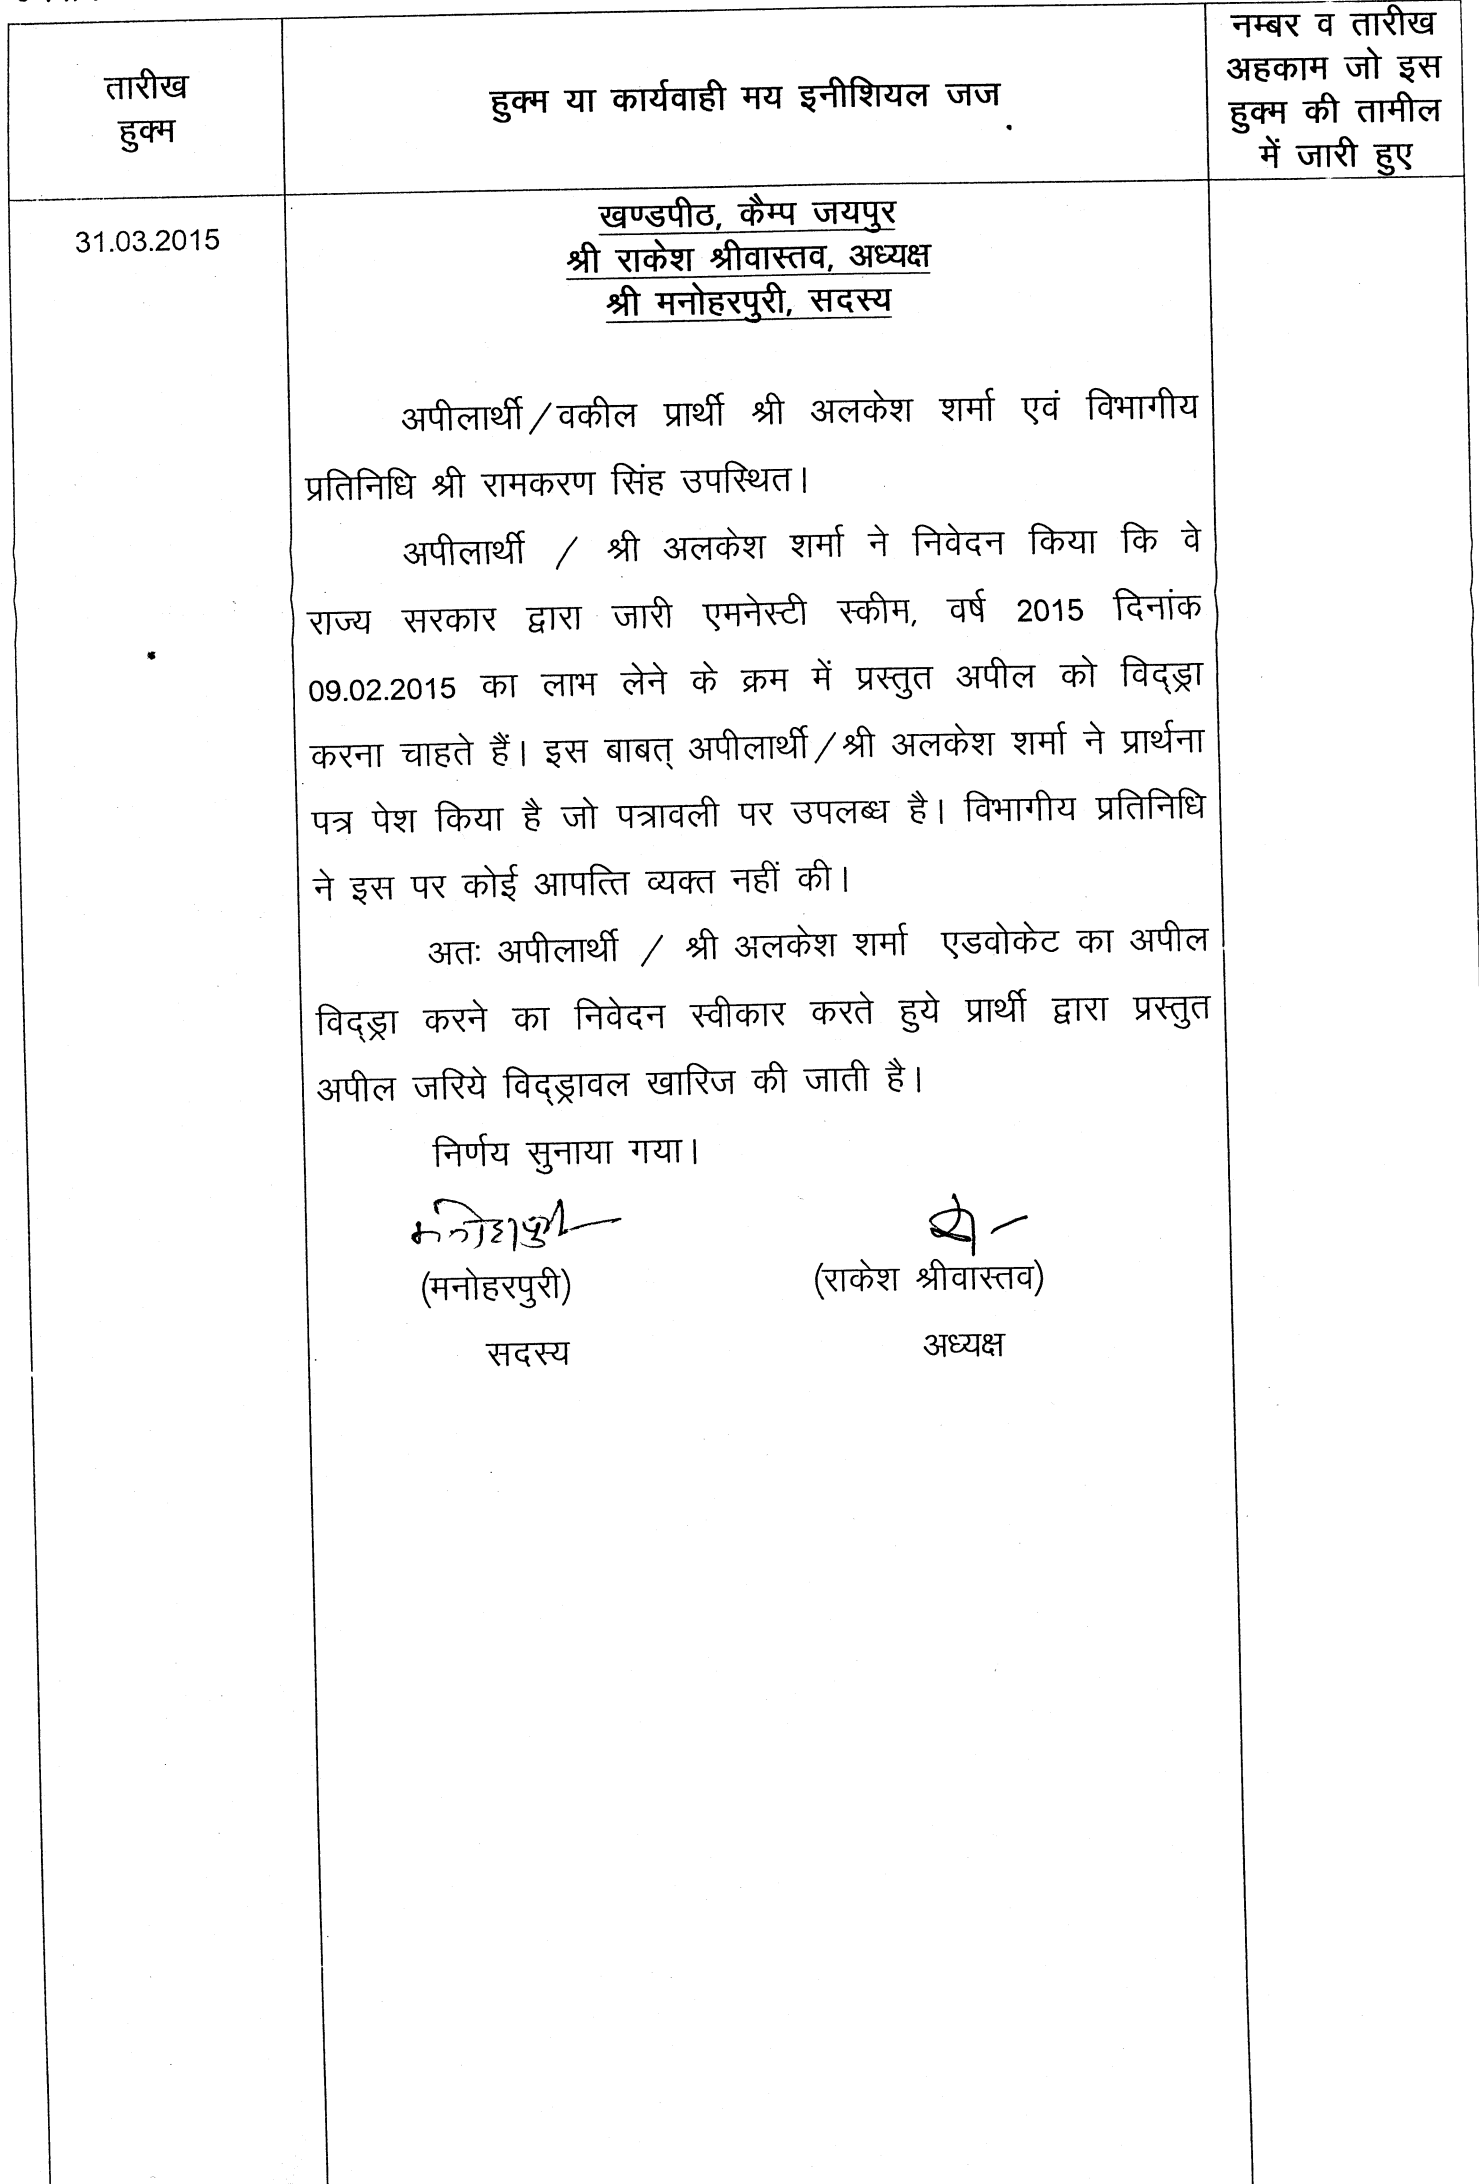 तारीख
हुक्म
हुक्म या कार्यवाही मय इनीशियल जज
नम्बर व तारीख
अहकाम जो इस
हुक्म की तामील
में जारी हुए
31.03.2015
खण्डपीठ, कैम्प जयपुर
श्री राकेश श्रीवास्तव, अध्यक्ष
श्री मनोहरपुरी, सदस्य
अपीलार्थी/वकील प्रार्थी श्री अलकेश शर्मा एवं विभागीय
प्रतिनिधि श्री रामकरण सिंह उपस्थित।
अपीलार्थी / श्री अलकेश शर्मा ने निवेदन किया कि वे
राज्य सरकार द्वारा जारी एमनेस्टी स्कीम, वर्ष 2015 दिनांक
09.02.2015 का लाभ लेने के क्रम में प्रस्तुत अपील को विद्ड्रा
करना चाहते हैं। इस बाबत् अपीलार्थी/श्री अलकेश शर्मा ने प्रार्थना
पत्र पेश किया है जो पत्रावली पर उपलब्ध है। विभागीय प्रतिनिधि
ने इस पर कोई आपत्ति व्यक्त नहीं की।
अतः अपीलार्थी / श्री अलकेश शर्मा एडवोकेट का अपील
विद्ड्रा करने का निवेदन स्वीकार करते हुये प्रार्थी द्वारा प्रस्तुत
अपील जरिये विद्ड्रावल खारिज की जाती है।
निर्णय सुनाया गया।
मनोहरपुरी
(मनोहरपुरी)
(राकेश श्रीवास्तव)
सदस्य
अध्यक्ष